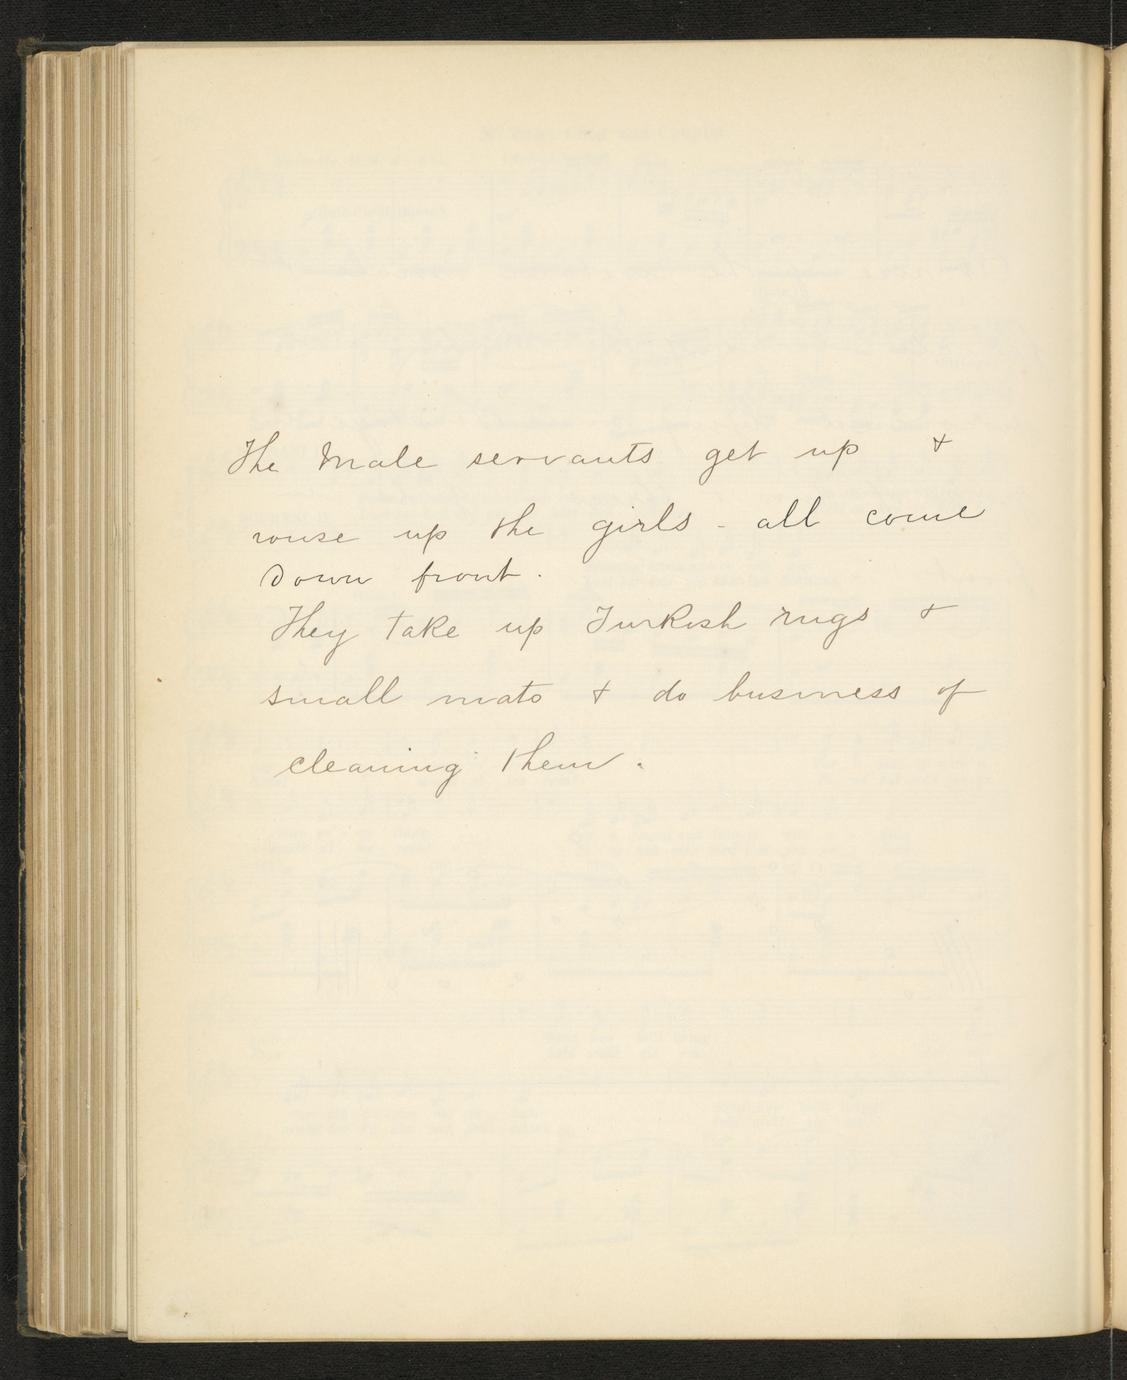 The Male servants get up &
rouse up the girls - all come
Down front.
They take up Turkish rugs &
small mats & do business of
cleaning them.